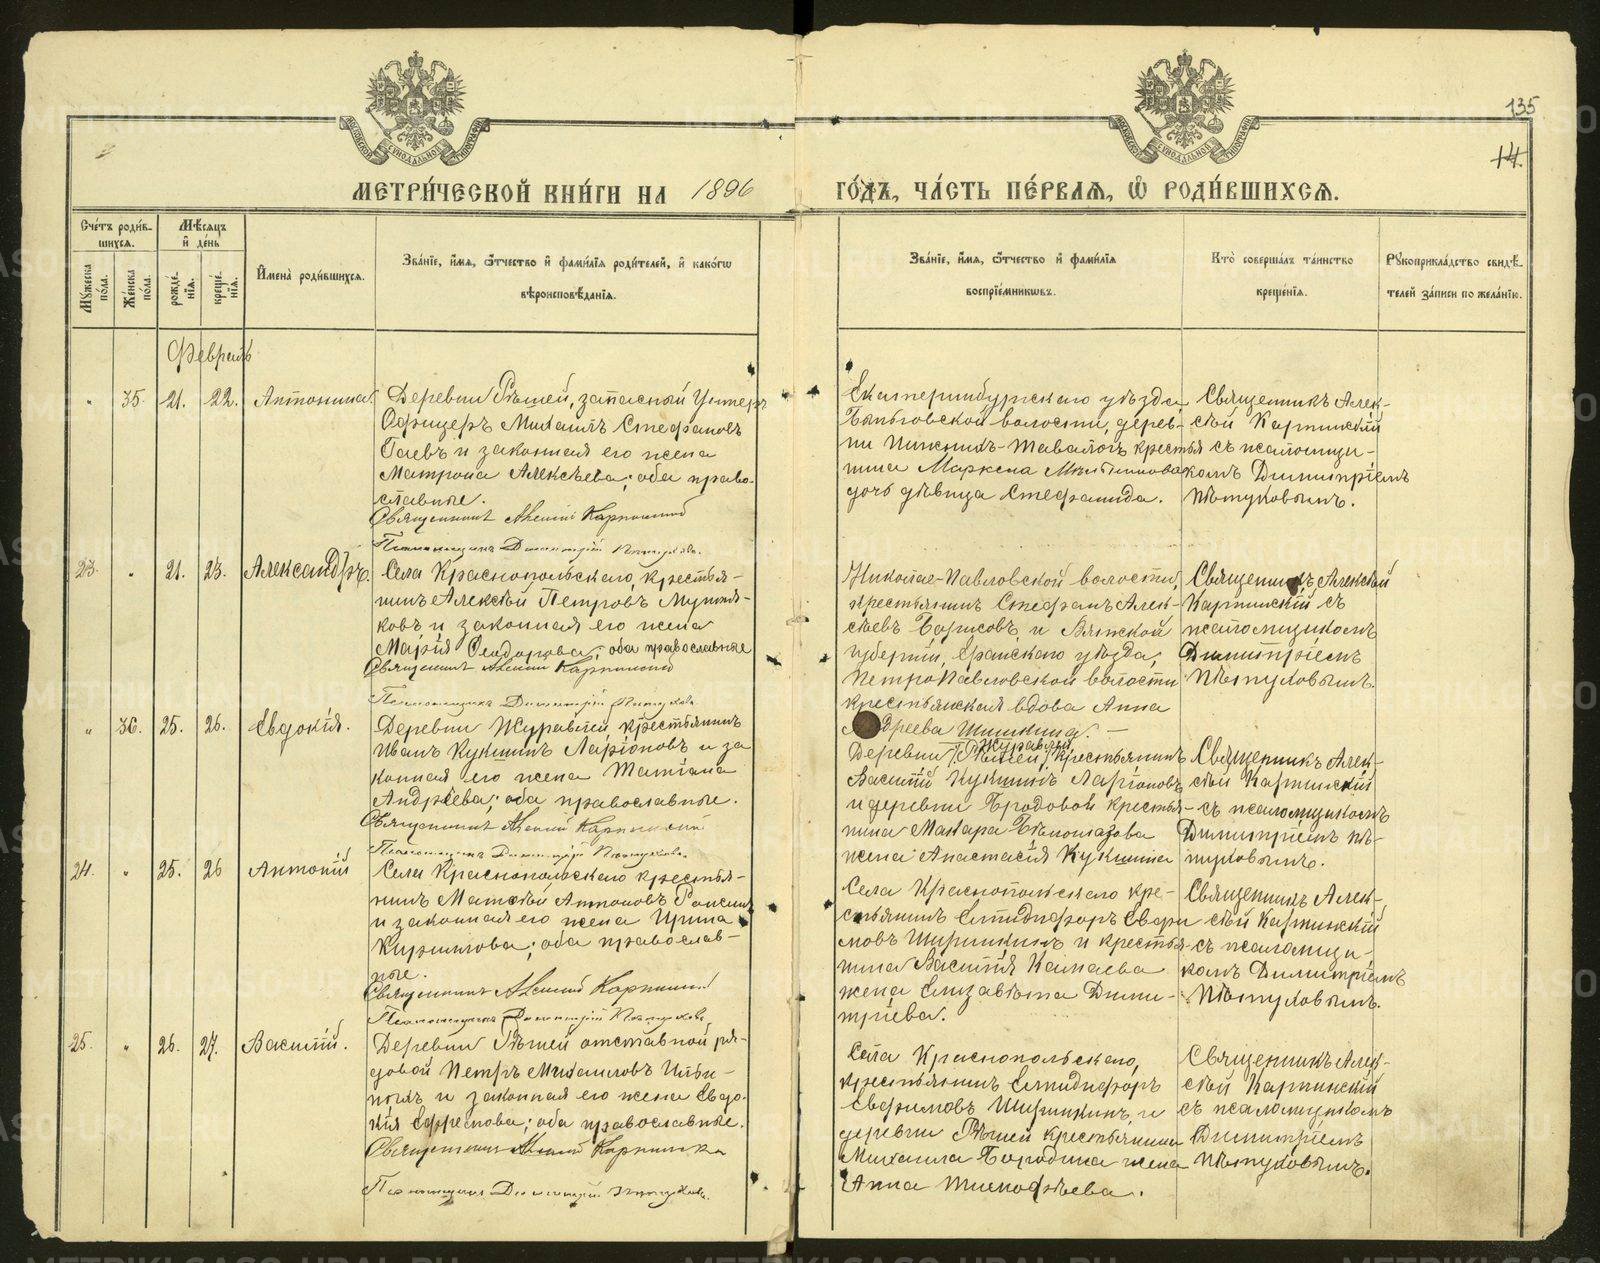 135
14.
МЕТРИ́ЧЕСКОЙ КНИ́ГИ НА 1896
ГО́ДЪ, ЧА́СТЬ ПЕ́РВАЯ, Ѽ РОДИ́ВШИХСЯ.
Сче́тъ роди́в-
шихся.
Мѣ́сяцъ
и҆ де́нь
Мꙋ́жеска по́ла.
Же́нска по́ла.
рожде́-
нїѧ.
креще́-
нїѧ.
И҆мена̀ роди́вшихся.
Зва́нїе, и҆́мя, ѻ҆́тчество и҆ фами́лїя роди́телей, и҆ како́гѡ
вѣроисповѣ́данїя.
Зва́нїе, и҆́мя, ѻ҆́тчество и҆ фами́лїя
воспрїе́мникѡвъ.
Кто̀ соверша́лъ та́инство
креще́нїя.
Рꙋкоприкла́дство свидѣ́-
телей за́писи по жела́нїю.
Февраль
" 35. 21. 22. Антонина.
Деревни Рѣшей, запасный Унтеръ
Офицеръ Михаилъ Стефановъ
Гаевъ и законная его жена
Матрона Алексѣева; оба право-
славные.
Священникъ Алексій Карпинский
Псаломщикъ Димитрій Пѣтуховъ.
Екатеринбургскаго уѣзда,
волости, дерев-
ни крестья
нина
дочь дѣвица Стефанида.
Священникъ Алек-
сѣй Карпинскій
съ псаломщи-
комъ Димитріемъ
Пѣтуховымъ.
23. " 21. 23. Александръ.
Села Краснопольскаго, крестья-
нинъ Алексѣй Петровъ
ковъ и законная его жена
Марія Ѳеодорова; оба православные
Священникъ Алексій Карпинский
Псаломщикъ Димитрій Пѣтуховъ.
Николае-Павловской волости,
крестьянинъ Стефанъ Алек-
сѣевъ Борисовъ, и Вятской
губерніи, уѣзда,
Петропавловской волости
крестьянская вдова Анна
дреева Шишкина.
Священникъ Алексѣй
Карпинскій съ
псаломщикомъ
Димитріемъ
Пѣтуховымъ.
" 36. 25. 26. Евдокія.
Деревни Журавлей, крестьянинъ
Иванъ Кукшинъ Ларіоновъ и за
конная его жена Татіана
Андрѣева; оба православные.
Священникъ Алексій Карпинский
Псаломщикъ Димитрій Пѣтуховъ.
Деревни Журавлей крестьянинъ
Василій Кукшинъ Ларіоновъ
и деревни Бродовой крестья-
нина Макара
жена Анастасія Кукшина
Священникъ Алек-
сѣй Карпинскій
съ псаломщикомъ
Димитріемъ Пѣ-
туховымъ.
24. " 25. 26 Антоній
Села Краснопольскаго крестья-
нинъ Матѳѣй Антоновъ
и законная его жена Ирина
Кириллова; оба православ-
ные.
Священникъ Алексій Карпинский
Псаломщикъ Димитрій Пѣтуховъ.
Села Краснопольскаго кре-
стьянинъ Елпидифоръ
мовъ Ширинкинъ и крестья-
нина Василія Катаева
жена Елизавѣта Дими-
тріева.
Священникъ Алек-
сѣй Карпинскій
съ псаломщи-
комъ Димитріемъ
Пѣтуховымъ.
25. " 26. 27. Василій.
Деревни Рѣшей отставной ря-
довой Петръ Михаиловъ
и законная его жена Евдо-
кія Ефремова; оба православные.
Священникъ Алексій
Псаломщикъ Димитрій Пѣтуховъ.
Села Краснопольскаго,
крестьянинъ Елпидифоръ
Евфимовъ Ширинкинъ, и
деревни Рѣшей крестьянина
Михаила Бородина жена
Анна Тимоѳѣева.
Священникъ Алек-
сѣй Карпинскій
съ псаломщикомъ
Димитріемъ
Пѣтуховымъ.